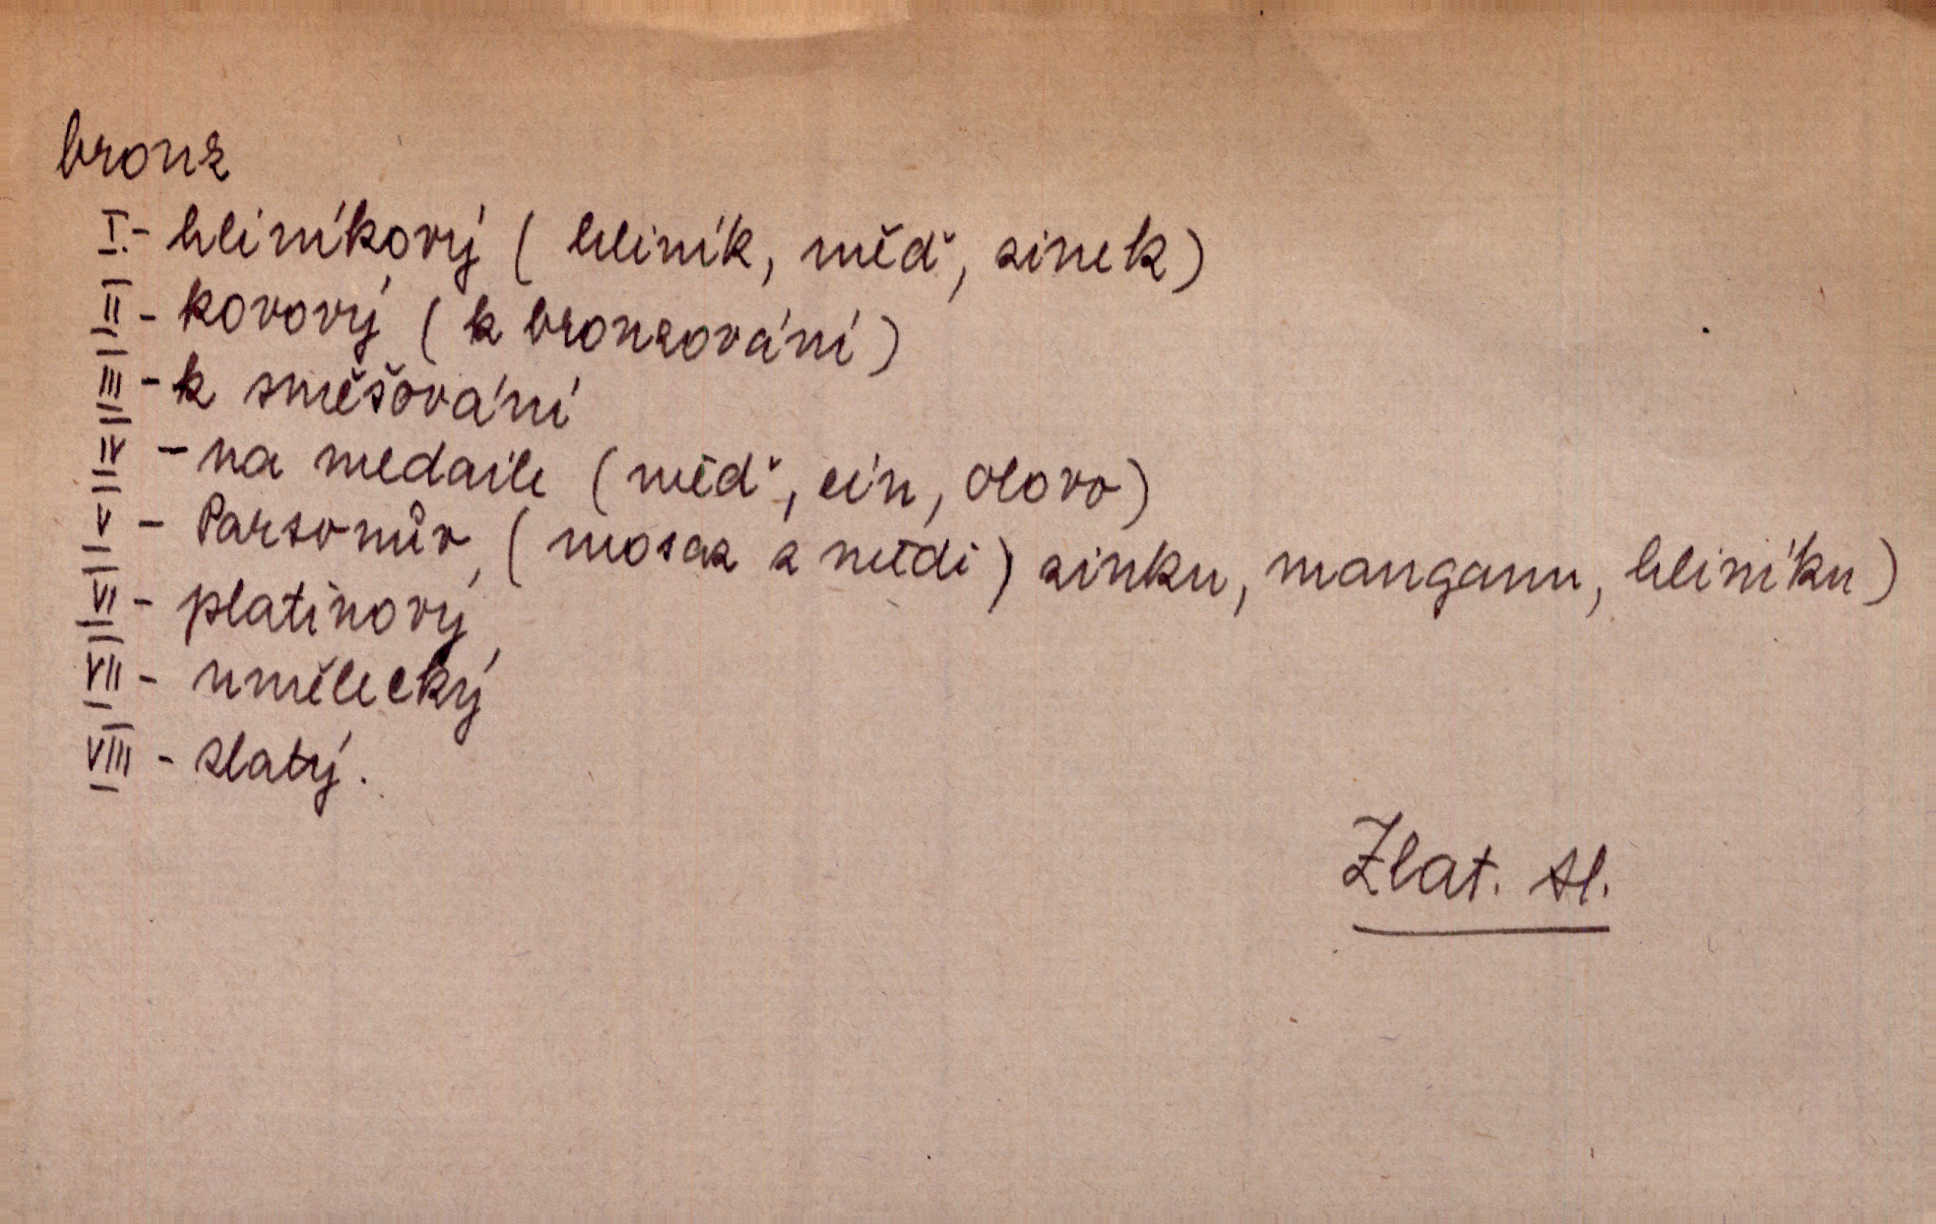 bronz
I. - hliníkový (hliník, měď, zinek)
II - kovový (k bronzování)
III - k směšování
IV - na medaile (měď, cín, olovo)
V - Parsonův, (mosaz z mědi) zinku, manganu, hliníku)
VI - platinový
VII - umělecký
VIII - zlatý.
Zlat. sl.